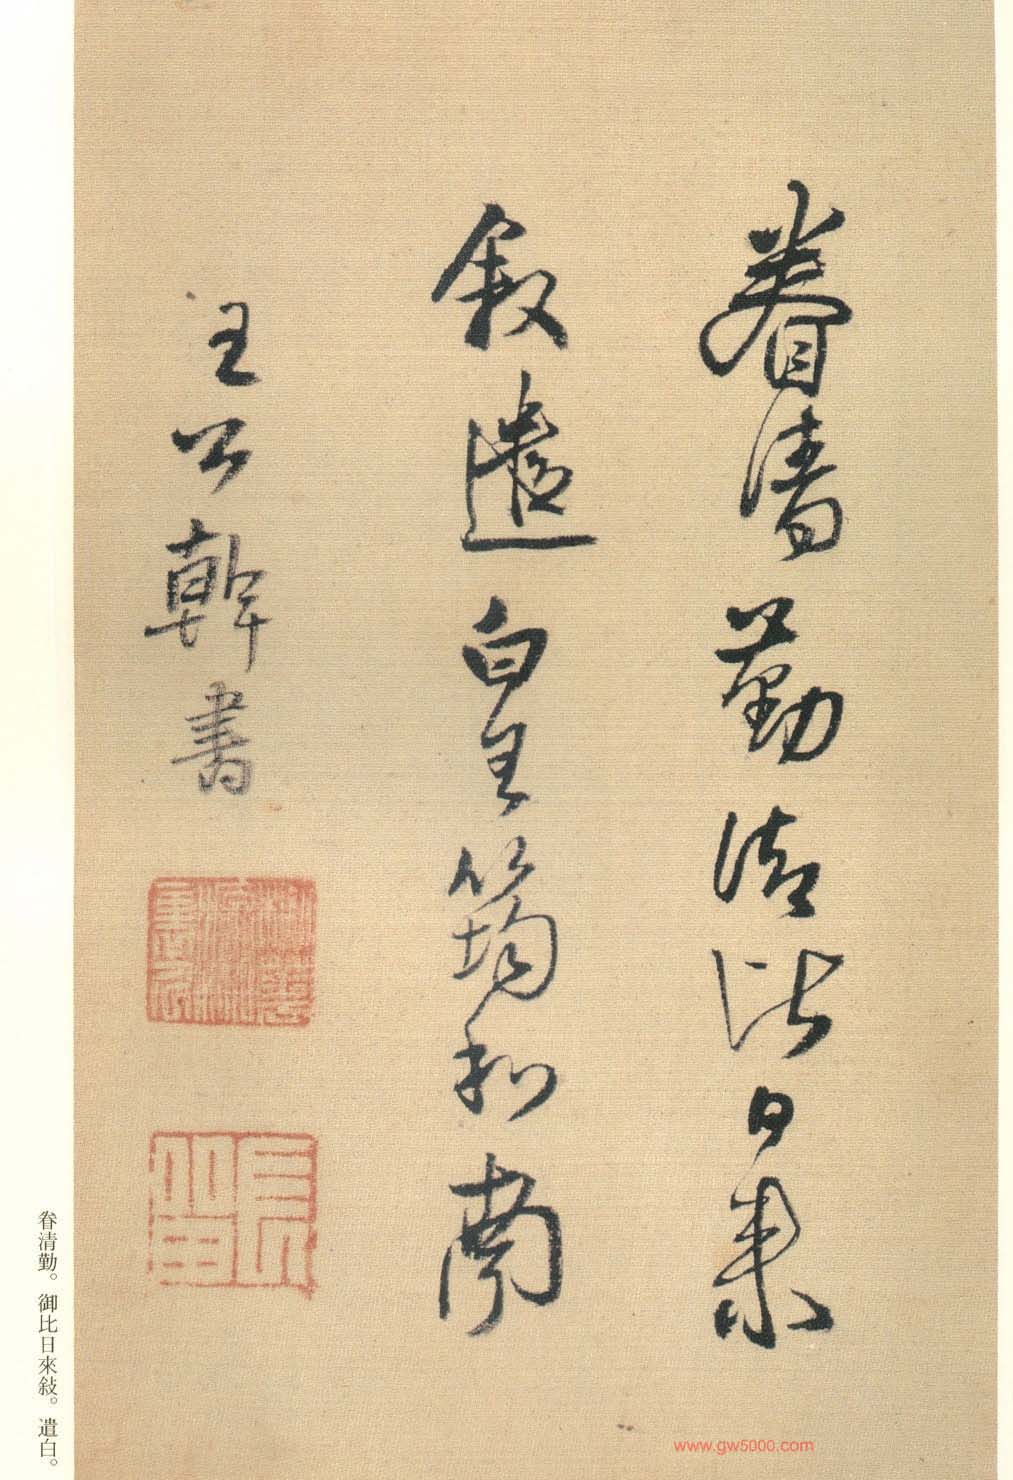 眷清勤御比日来
叙遣白王筠和南
王公幹書
眷清勤。御比日來敍。遣白。
www.gw5000.com